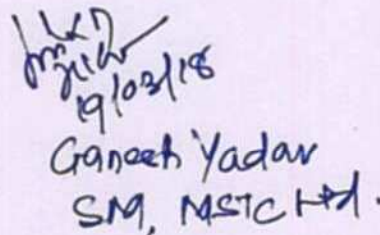 19/03/18
Ganesh Yadav
SM, MSTC Ltd.